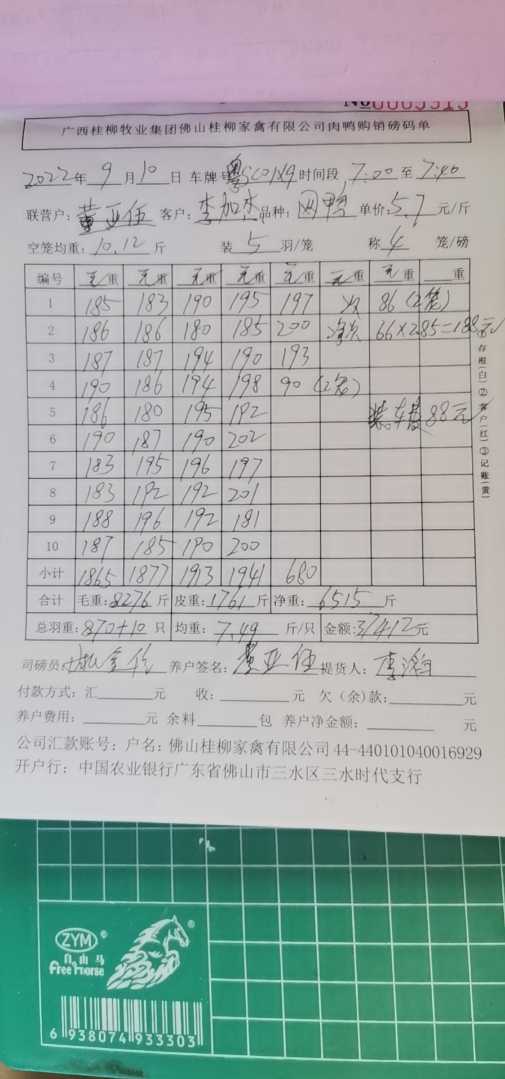 广西桂柳牧业集团佛山桂柳家禽有限公司肉鸭购销磅码单
2022年 9月10日 车牌 时间段 7:00 至 7:40
联营户: 董亚伍 客户: 李加木 品种: 鸭 单价: 5.7 元/斤
空笼均重: 10.12 斤 装 5 羽/笼 称 4 笼/磅
编号 毛重 毛重 毛重 毛重 毛重 毛重 毛重 重
1 185 183 190 195 197 次 86(2笼)
2 186 186 180 185 200 66×2.85=188元
3 187 187 194 190 193
4 190 186 194 198 90(2笼)
5 186 180 195 192 装车费88元
6 190 187 190 202
7 183 195 196 197
8 183 192 192 201
9 188 196 192 181
10 187 185 190 200
小计 1865 1877 1913 1941 680
合计 毛重: 8276 斤 皮重: 1761 斤 净重: 6515 斤
总羽重: 870+10 只 均重: 7.49 斤/只 金额: 37412元
司磅员: 养户签名: 董亚伍 提货人: 李
付款方式: 汇 元 收: 元 欠(余)款: 元
养户费用: 元 余料 包 养户净金额: 元
公司汇款账号: 户名: 佛山桂柳家禽有限公司 44-440101040016929
开户行: 中国农业银行广东省佛山市三水区三水时代支行
①存根(白)②客户(红)③记账(黄)
ZYM
自由马
Free Horse
6 938074 933303